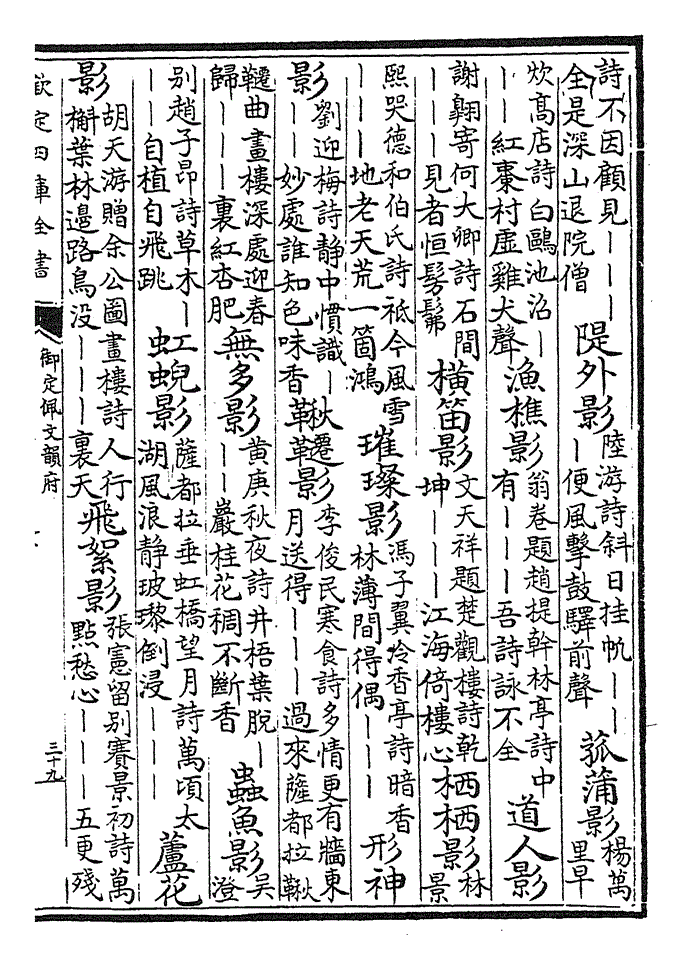 詩不因顧見｜｜｜全是深山退院僧隄外影陸游詩斜日挂帆｜｜｜便風擊鼓驛前聲菰蒲影楊萬里早
炊高店詩白鷗池沼｜｜｜紅棗村虛雞犬聲漁樵影翁卷題趙提幹林亭詩中有｜｜｜吾詩詠不全道人影
謝翺寄何大卿詩石間｜｜｜見者恒髣髴橫笛影文天祥題楚觀樓詩乾坤｜｜｜江海倚樓心栖栖影林景
熙哭德和伯氏詩祗今風雪｜｜｜地老天荒一箇鴻璀璨影馮子翼冷香亭詩暗香林薄間得偶｜｜｜形神
影劉迎梅詩静中慣識｜｜｜妙處誰知色味香鞦韆影李俊民寒食詩多情更有牆東月送得｜｜｜過來薩都拉鞦
韆曲畫樓深處迎春歸｜｜｜裏紅杏肥無多影黄庚秋夜詩井梧葉脱｜｜｜巖桂花稠不斷香蟲魚影吳澄
别趙子昂詩草木｜｜｜自植自飛跳虹蜺影薩都拉垂虹橋望月詩萬頃太湖風浪静玻瓈倒浸｜｜｜蘆花
影胡天游贈余公圖畫樓詩人行槲葉林邊路鳥没｜｜｜裏天飛絮影張憲留别賽景初詩萬點愁心｜｜｜五更殘
欽定四庫全書
御定佩文韻府
三十九